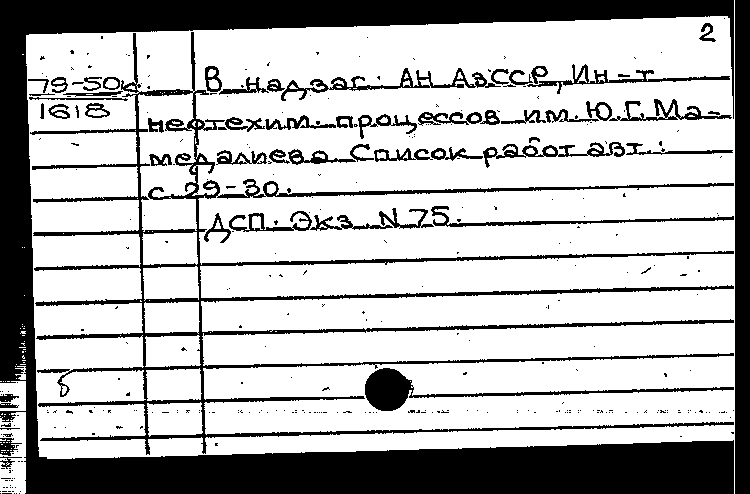 2
79-50к. В надзаг: АН АзССР, Ин-т
1618
нефтехим. процессов им. Ю.Г. Ма-
медалиева. Список работ авт.:
с. 29-30.
ДСП. Экз N 75.
б